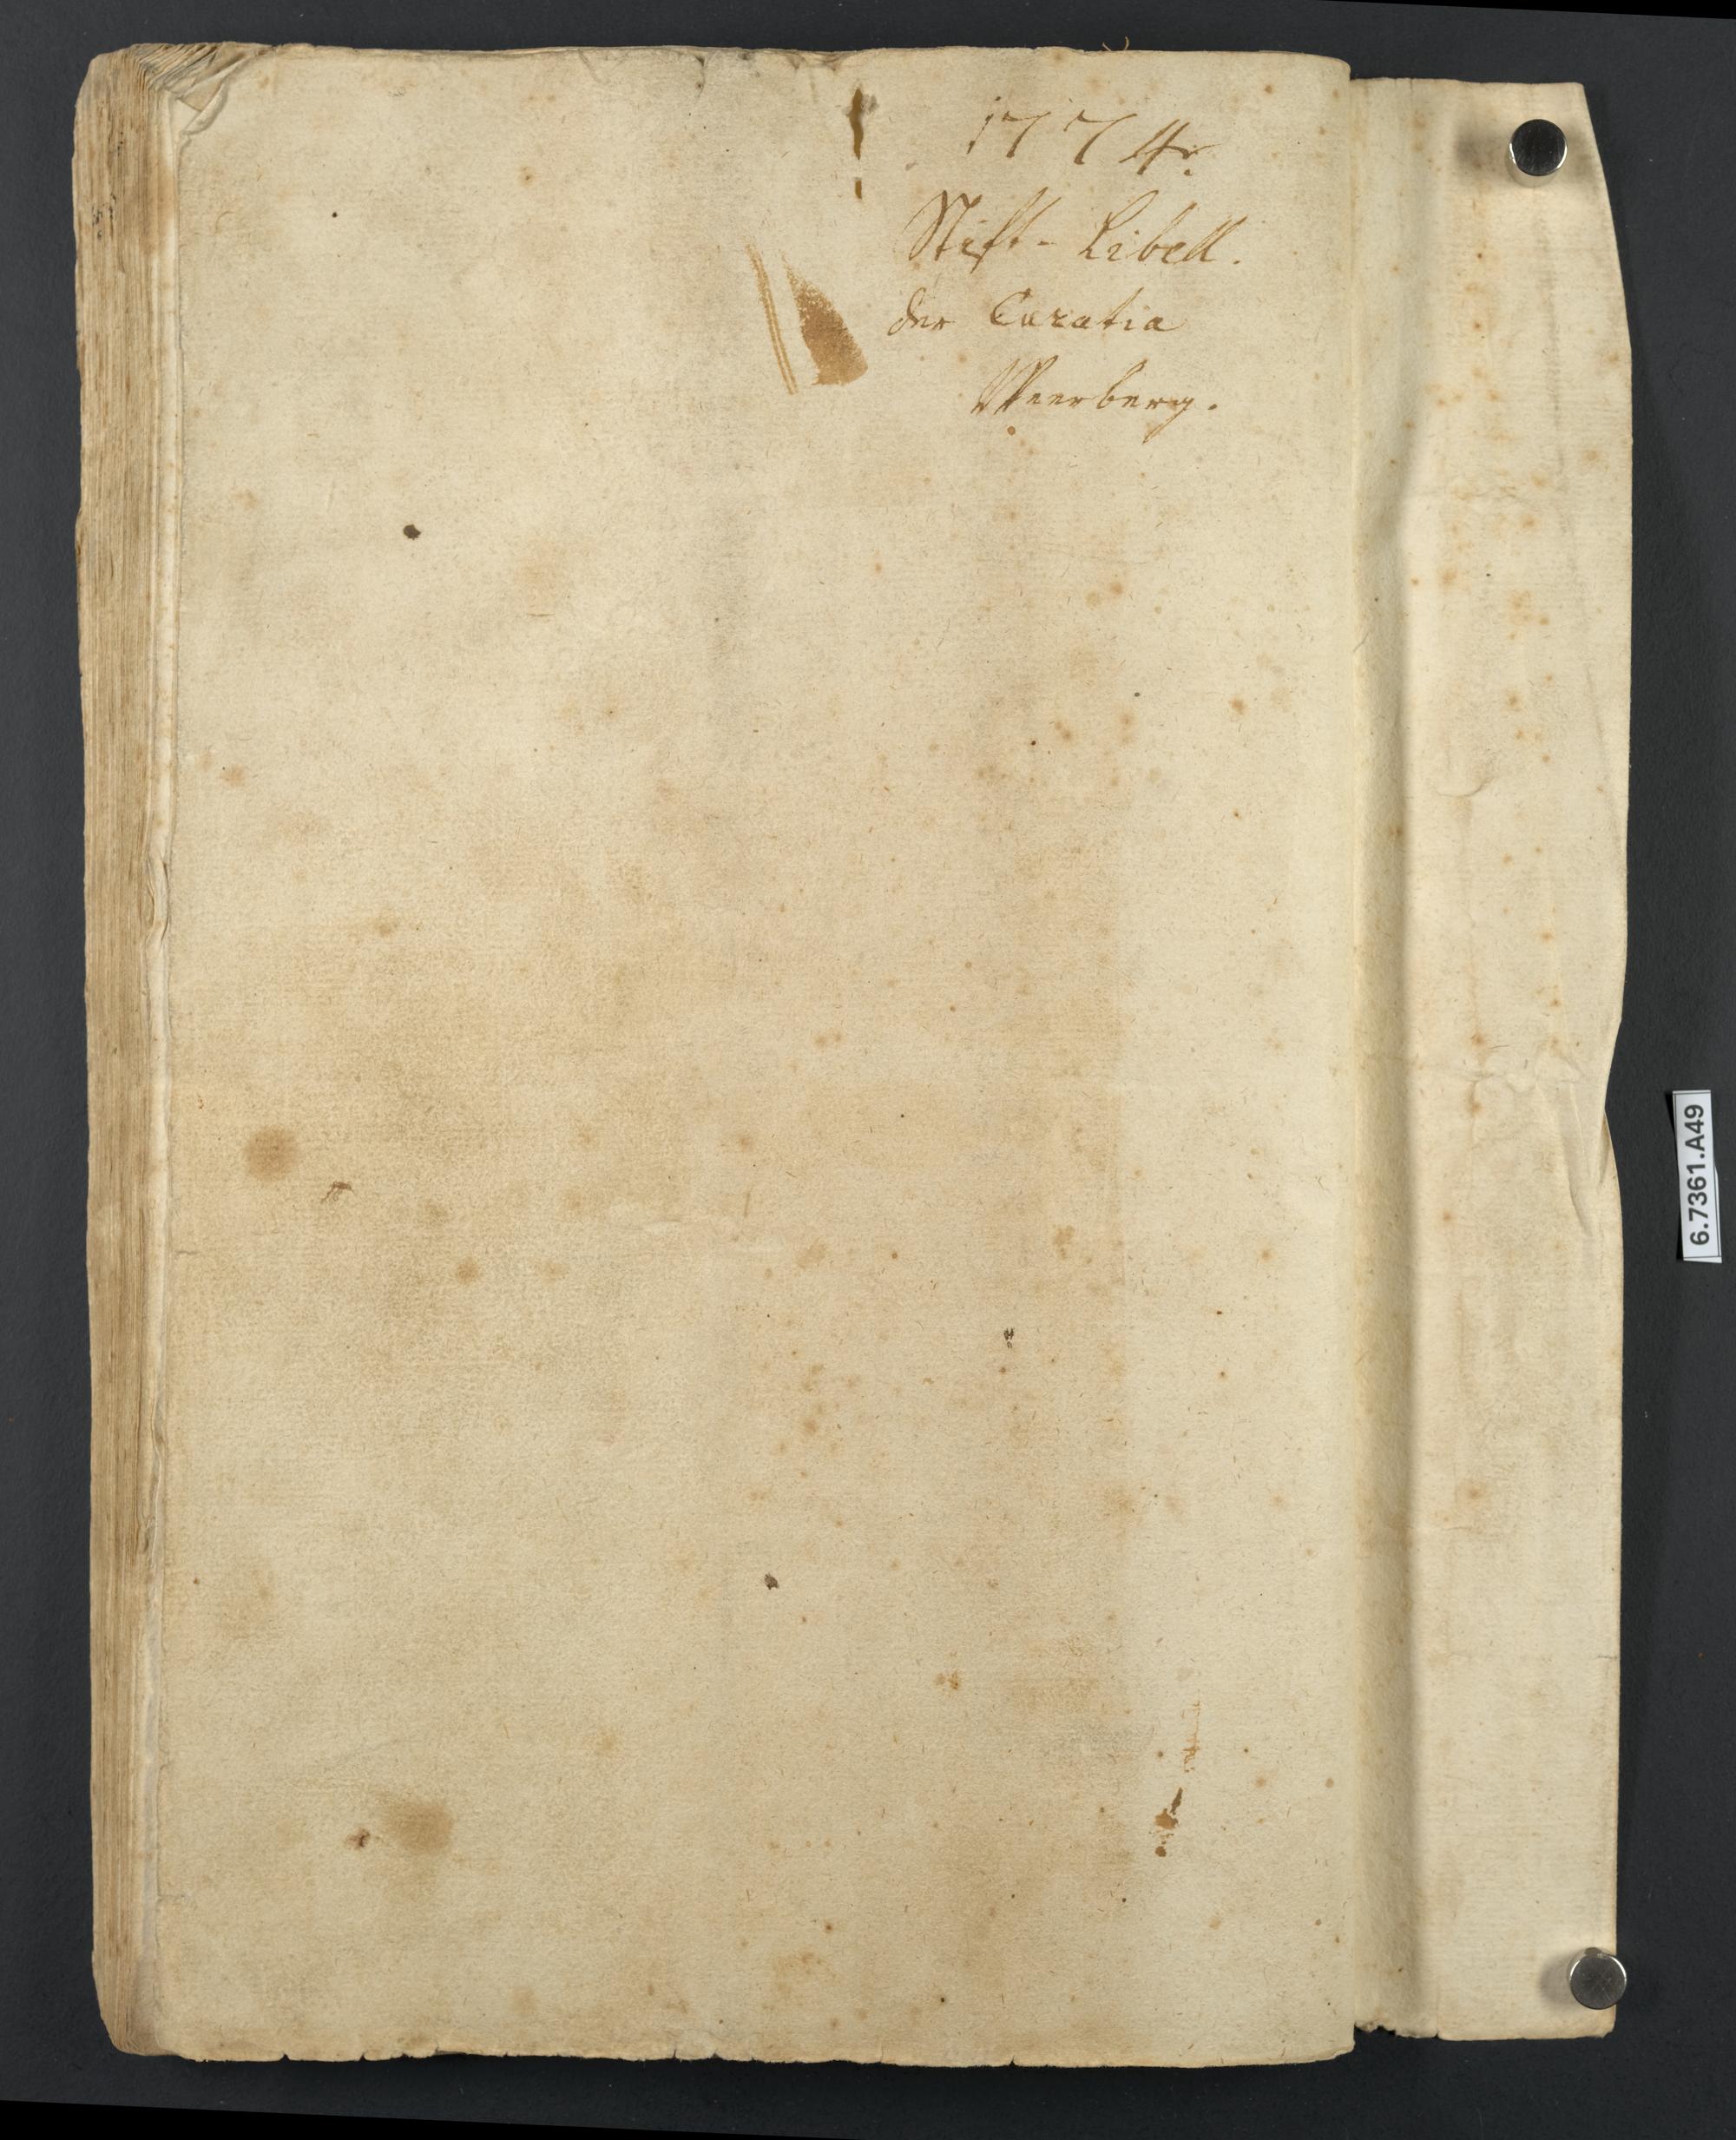 1774.
Stift- Libell.
der Curatia
Weerberg.
6.7361.A49